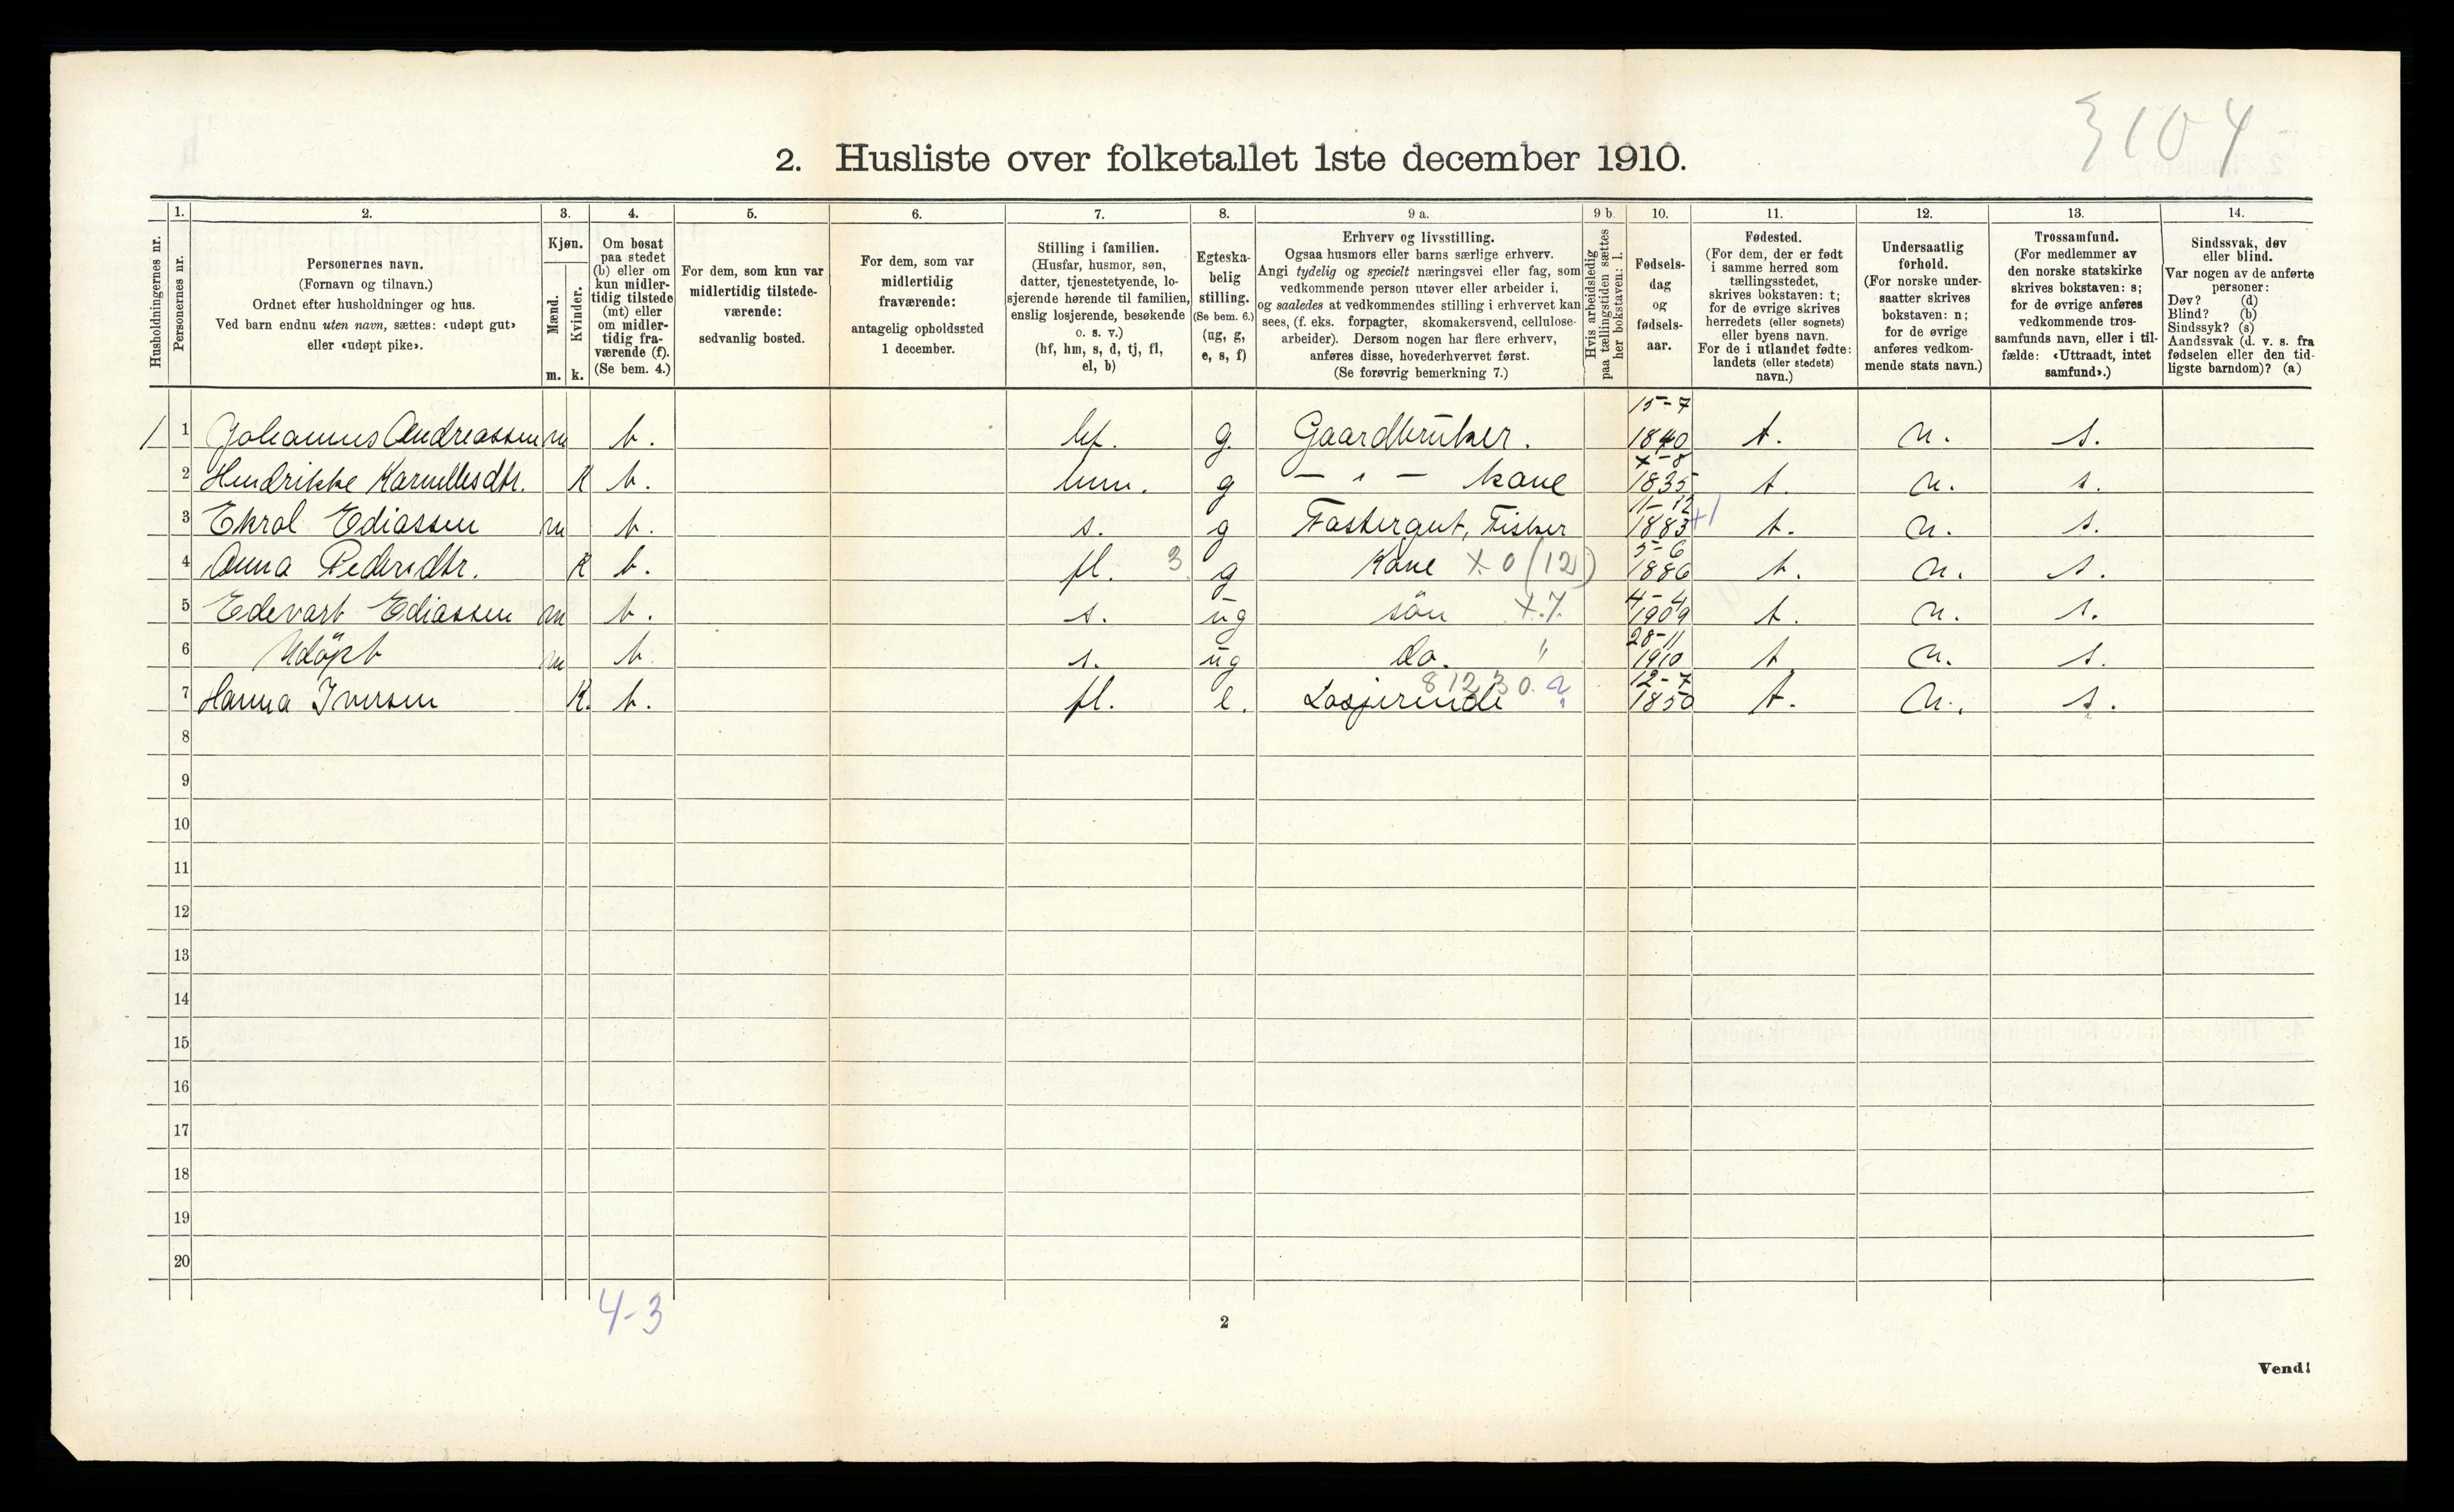 3104
2. Husliste over folketallet 1ste december 1910.
Husholdningernes nr.
1.
Personernes nr.
2.
Personernes navn.
(Fornavn og tilnavn.)
Ordnet efter husholdninger og hus.
Ved barn endnu uten navn, sættes: «udøpt gut»
eller «udøpt pike».
3.
Kjøn.
Mænd.
Kvinder.
m. k.
4.
Om bosat
paa stedet
(b) eller om
kun midler-
tidig tilstede
(mt) eller
om midler-
tidig fra-
værende (f).
(Se bem. 4.)
5.
For dem, som kun var
midlertidig tilstede-
værende:
sedvanlig bosted.
6.
For dem, som var
midlertidig
fraværende:
antagelig opholdssted
1 december.
7.
Stilling i familien.
(Husfar, husmor, søn,
datter, tjenestetyende, lo-
sjerende hørende til familien,
enslig losjerende, besøkende
o. s. v.)
(hf, hm, s, d, tj, fl,
el, b)
8.
Egteska-
belig
stilling.
(Se bem. 6.)
(ug, g,
e, s, f)
9 a.
Erhverv og livsstilling.
Ogsaa husmors eller barns særlige erhverv.
Angi tydelig og specielt næringsvei eller fag, som
vedkommende person utøver eller arbeider i,
og saaledes at vedkommendes stilling i erhvervet kan
sees, (f. eks. forpagter, skomakersvend, cellulose-
arbeider). Dersom nogen har flere erhverv,
anføres disse, hovederhvervet først.
(Se forøvrig bemerkning 7.)
9 b.
Hvis arbeidsledig
paa tællingstiden sættes
her bokstaven: l.
10.
Fødsels-
dag
og
fødsels-
aar.
11.
Fødested.
(For dem, der er født
i samme herred som
tællingsstedet,
skrives bokstaven: t;
for de øvrige skrives
herredets (eller sognets)
eller byens navn.
For de i utlandet fødte:
landets (eller stedets)
navn.)
12.
Undersaatlig
forhold.
(For norske under-
saatter skrives
bokstaven: n;
for de øvrige
anføres vedkom-
mende stats navn.)
13.
Trossamfund.
(For medlemmer av
den norske statskirke
skrives bokstaven: s;
for de øvrige anføres
vedkommende tros-
samfunds navn, eller i til-
fælde: «Uttraadt, intet
samfund».)
14.
Sindssvak, døv
eller blind.
Var nogen av de anførte
personer:
Døv? (d)
Blind? (b)
Sindssyk? (s)
Aandssvak (d. v. s. fra
fødselen eller den tid-
ligste barndom)? (a)
1 1 Johannes Andreassen m b. hf. g. Gaardbruker. 15-7 1840 t. n. s.
2 Hendrikke Karnellesdtr. K b. hm. g — " — kone 1835 t. n. s.
3 Ekrol Ediassen m b. s. g Fostergut, Fisker 11-12 1883 t. n. s.
4 Anna Pedersdtr. K b. fl. 3 g Kone x 0 (12) 5-6 1886 t. n. s.
5 Edevart Ediassen m b. s. ug sön x.7. 4-4 1909 t. n. s.
6 Udöpt m b s. ug do. " 28-11 1910 t n. s.
7 Hanna Iversen K. b. fl. e. Losjerende 81230. ? 12-7 1850 t. n. s.
8
9
10
11
12
13
14
15
16
17
18
19
20
4-3
2
Vend!